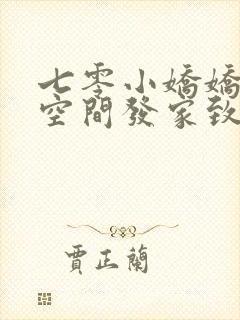 七零小嬌嬌
空間發家致
賈正蘭